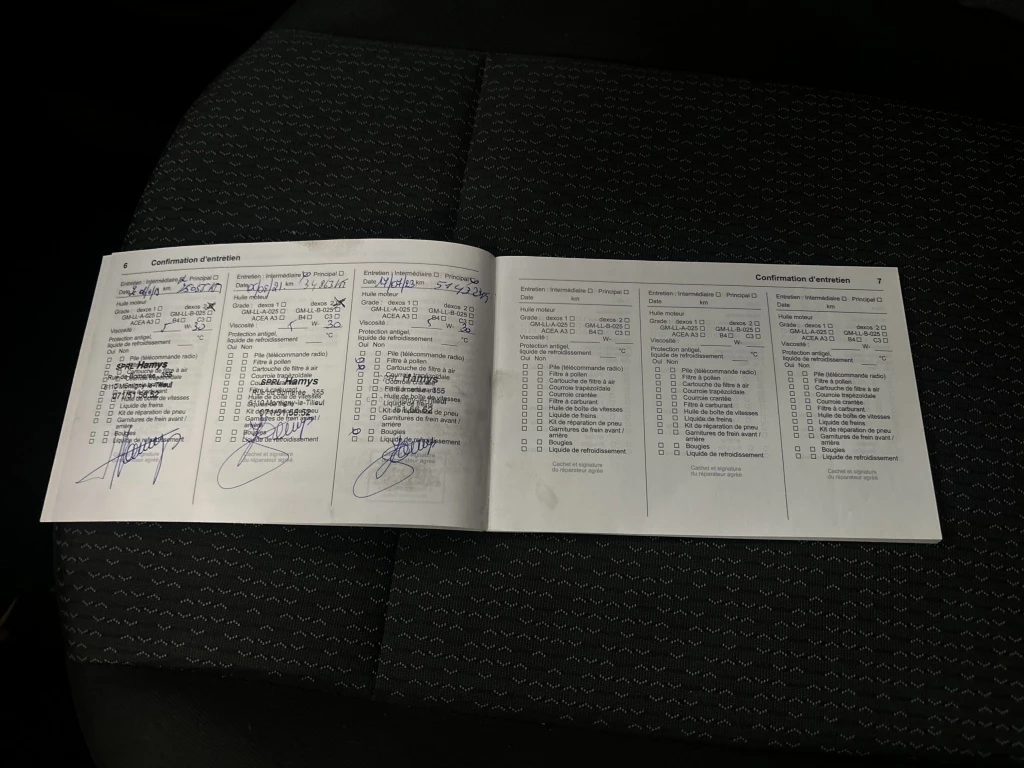 6 Confirmation d'entretien
Entretien : Intermédiaire Principal
Date km
Huile moteur
Grade : dexos 1 dexos 2
GM-LL-A-025 GM-LL-B-025
ACEA A3 B4 C3
Viscosité : 5 W- 30
Protection antigel,
liquide de refroidissement °C
Oui Non
Pile (télécommande radio)
Filtre à pollen
Cartouche de filtre à air
SPRL Hamys
071/51.56.52
Huile de boîte de vitesses
Liquide de freins
Kit de réparation de pneu
Bougies
Liquide de refroidissement
Entretien : Intermédiaire Principal
Date km
Huile moteur
Grade : dexos 1 dexos 2
GM-LL-A-025 GM-LL-B-025
ACEA A3 B4 C3
Viscosité : 5 W- 30
Protection antigel,
liquide de refroidissement °C
Oui Non
Pile (télécommande radio)
Filtre à pollen
Cartouche de filtre à air
Courroie trapézoïdale
SPRL Hamys
071/51.56.52
Kit de réparation de pneu
Bougies
Liquide de refroidissement
Cachet et signature
du réparateur agréé
Entretien : Intermédiaire Principal
Date km
Huile moteur
Grade : dexos 1 dexos 2
GM-LL-A-025 GM-LL-B-025
ACEA A3 B4 C3
Viscosité : 5 W- 30
Protection antigel,
liquide de refroidissement °C
Oui Non
Pile (télécommande radio)
Filtre à pollen
Cartouche de filtre à air
Huile de boîte de vitesses
Liquide de freins
Kit de réparation de pneu
Garnitures de frein avant /
arrière
Bougies
Liquide de refroidissement
Confirmation d'entretien 7
Entretien : Intermédiaire Principal
Date km
Huile moteur
Grade : dexos 1 dexos 2
GM-LL-A-025 GM-LL-B-025
ACEA A3 B4 C3
Viscosité : W-
Protection antigel,
liquide de refroidissement °C
Oui Non
Pile (télécommande radio)
Filtre à pollen
Cartouche de filtre à air
Courroie trapézoïdale
Courroie crantée
Filtre à carburant
Huile de boîte de vitesses
Liquide de freins
Kit de réparation de pneu
Garnitures de frein avant /
arrière
Bougies
Liquide de refroidissement
Cachet et signature
du réparateur agréé
Entretien : Intermédiaire Principal
Date km
Huile moteur
Grade : dexos 1 dexos 2
GM-LL-A-025 GM-LL-B-025
ACEA A3 B4 C3
Viscosité : W-
Protection antigel,
liquide de refroidissement °C
Oui Non
Pile (télécommande radio)
Filtre à pollen
Cartouche de filtre à air
Courroie trapézoïdale
Courroie crantée
Filtre à carburant
Huile de boîte de vitesses
Liquide de freins
Kit de réparation de pneu
Garnitures de frein avant /
arrière
Bougies
Liquide de refroidissement
Cachet et signature
du réparateur agréé
Entretien : Intermédiaire Principal
Date km
Huile moteur
Grade : dexos 1 dexos 2
GM-LL-A-025 GM-LL-B-025
ACEA A3 B4 C3
Viscosité : W-
Protection antigel,
liquide de refroidissement °C
Oui Non
Pile (télécommande radio)
Filtre à pollen
Cartouche de filtre à air
Courroie trapézoïdale
Courroie crantée
Filtre à carburant
Huile de boîte de vitesses
Liquide de freins
Kit de réparation de pneu
Garnitures de frein avant /
arrière
Bougies
Liquide de refroidissement
Cachet et signature
du réparateur agréé